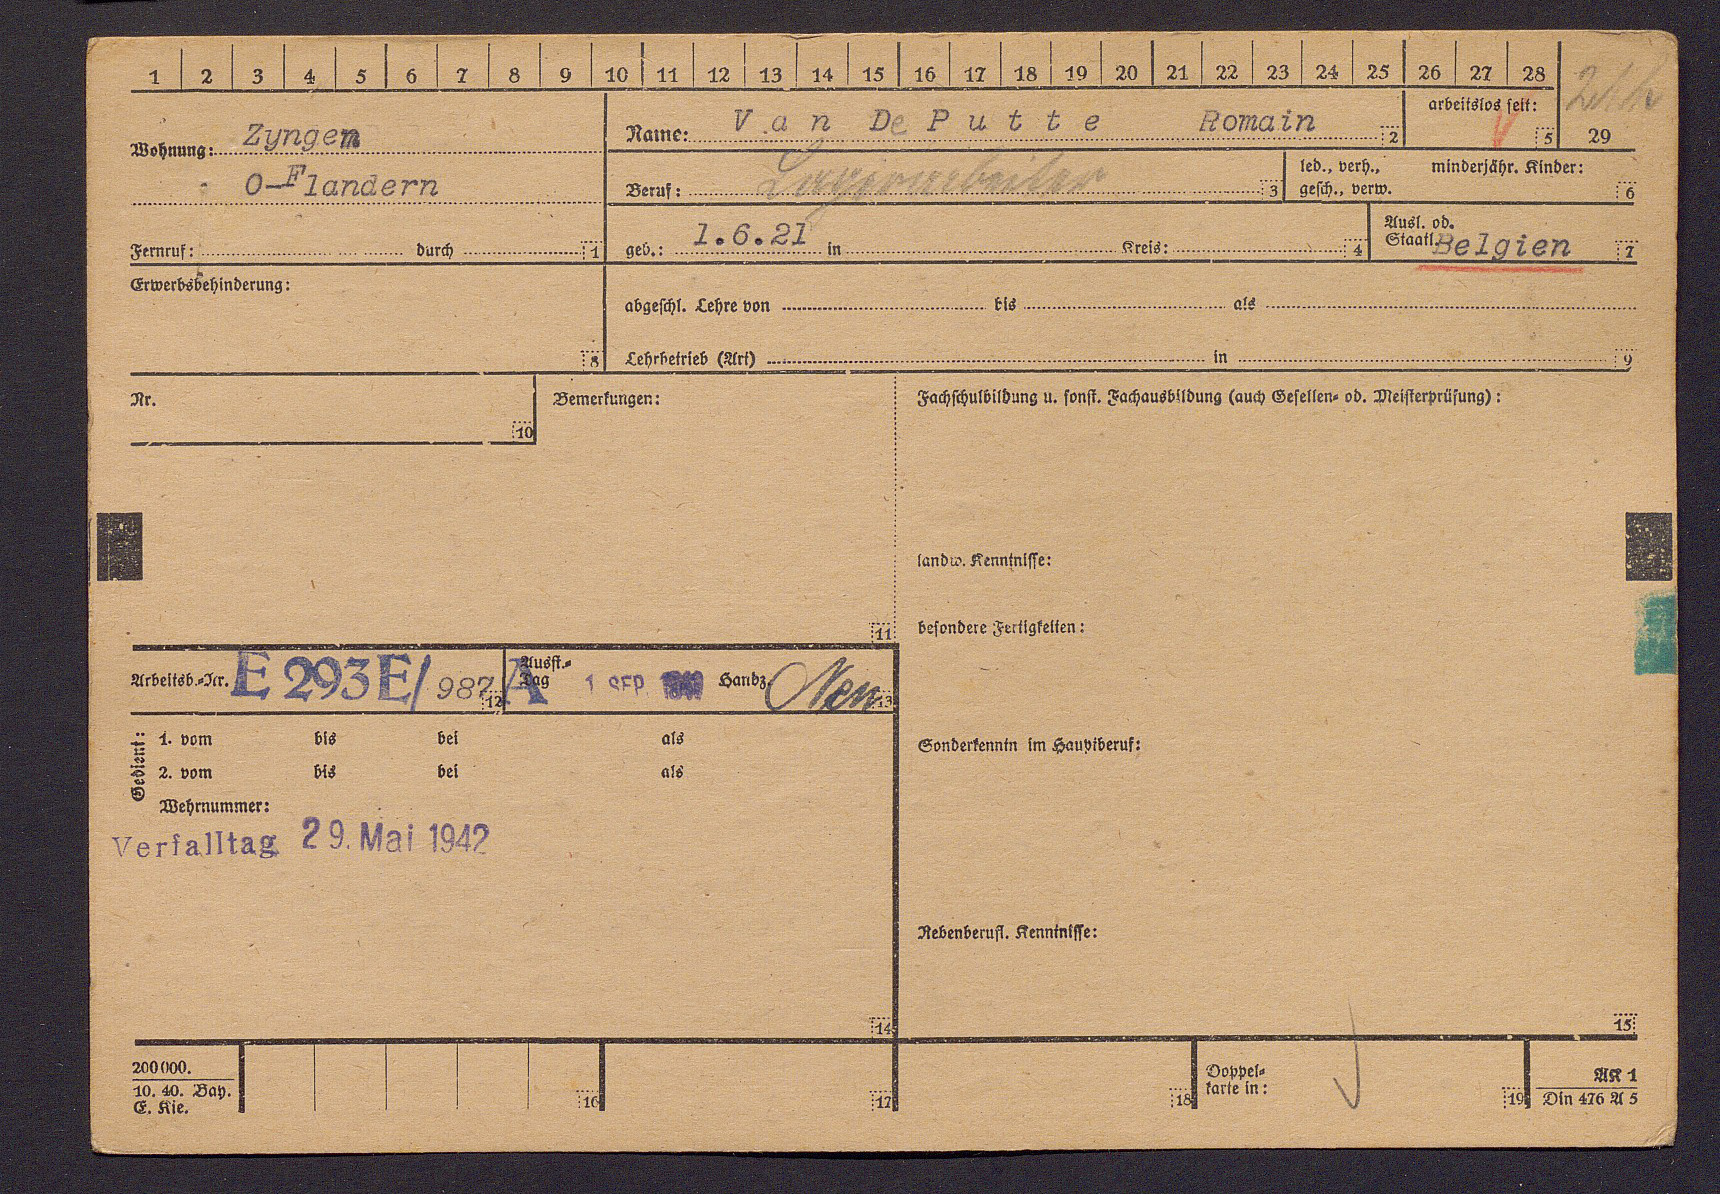 1 2 3 4 5 6 7 8 9 10 11 12 13 14 15 16 17 18 19 20 21 22 23 24 25 26 27 28
Wohnung: Zyngem
O-Flandern
Fernruf: durch 1
Name: Van De Putte Romain 2
arbeitslos seit: 5
29
Beruf: Lagerarbeiter 3
led., verh., gesch., verw.
minderjähr. Kinder: 6
geb.: 1.6.21 in Kreis: 4
Ausl. od. Staatl. Belgien 7
Erwerbsbehinderung: 8
abgeschl. Lehre von bis als
Lehrbetrieb (Art) in 9
Nr. 10
Bemerkungen: 11
Fachschulbildung u. sonst. Fachausbildung (auch Gesellen- od. Meisterprüfung):
landw. Kenntnisse:
besondere Fertigkeiten:
Arbeitsb.-Nr. E 293E/987 A 12
Ausst.-Tag 1 SEP. Handz. 13
Sonderkenntn im Hauptberuf:
Gedient:
1. vom bis bei als
2. vom bis bei als
Wehrnummer:
Verfalltag 29. Mai 1942
Nebenberufl. Kenntnisse:
14
15
200000.
10. 40. Bay.
E. Kie.
16
17
18
Doppel-
karte in:
19
AK 1
Din 476 A 5